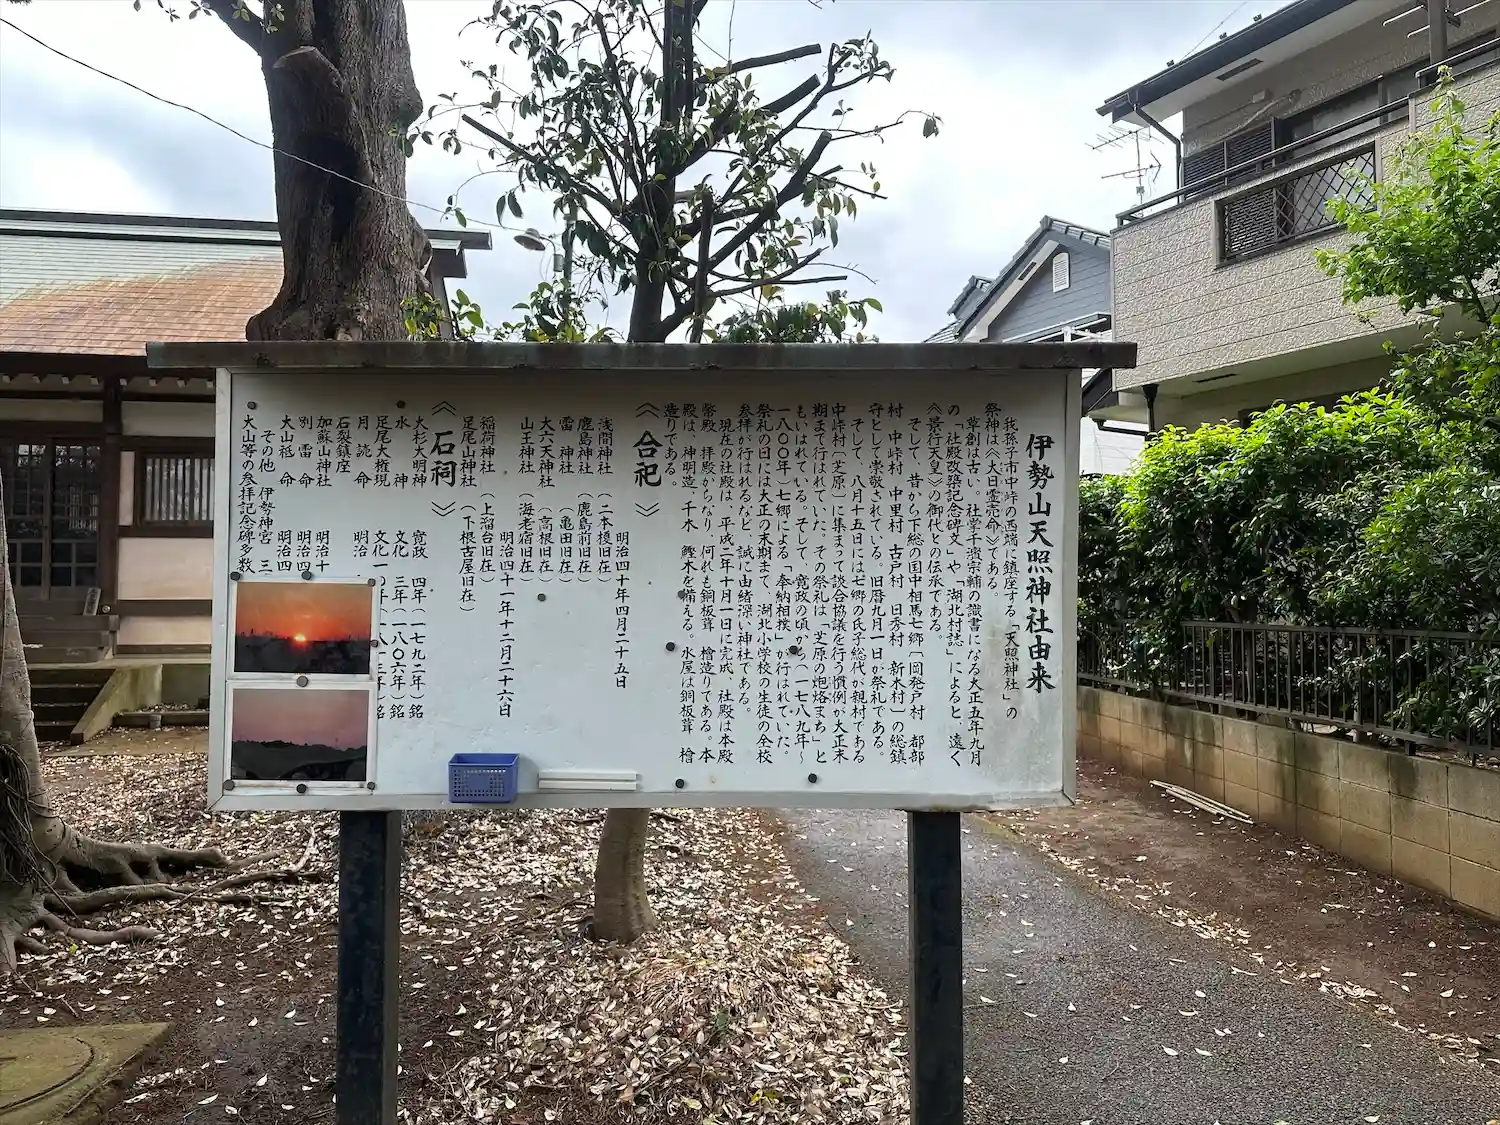 伊勢山天照神社由来
我孫子市中峠の西端に鎮座する「天照神社」の
祭神は《大日霊売命》である。
草創は古い。社学千濱宗輔の識書になる大正五年九月
の「社殿改築記念碑文」や「湖北村誌」によると、遠く
《景行天皇》の御代との伝承である。
そして、昔から下総の国中相馬七郷〔岡発戸村 都部
村 中峠村 中里村 古戸村 日秀村 新木村〕の総鎮
守として崇敬されている。旧暦九月一日が祭礼である。
そして、八月十五日には七郷の氏子総代が親村である
中峠村〔芝原〕に集まって談合協議を行う慣例が大正末
期まで行はれていた。その祭礼は「芝原の炮烙まち」と
もいはれている。そして、寛政の頃から（一七八九年～
一八〇〇年）七郷による「奉納相撲」が行はれていた。
祭礼の日には大正の末期まで、湖北小学校の生徒の全校
参拝が行はれるなど、誠に由緒深い神社である。
現在の社殿は、平成二年十月一日に完成、社殿は本殿
幣殿、拝殿からなり、何れも銅板葺 檜造りである。本
殿は、神明造、千木 鰹木を備える。水屋は銅板葺 檜
造りである。
《合祀》
明治四十年四月二十五日
浅間神社（二本榎旧在）
鹿島神社（鹿島前旧在）
雷 神社（亀田旧在）
大六天神社（高根旧在）
山王神社（海老宿旧在）
明治四十一年十二月二十六日
稲荷神社（上溜台旧在）
足尾山神社（下根古屋旧在）
《石祠》
大杉大明神 寛政 四年（一七九二年）銘
水 神 文化 三年（一八〇六年）銘
足尾大権現 文化一〇年（一八一三年）銘
月読命 明治
石裂鎮座
加蘇山神社 明治十
別雷命 明治四
大山祗命 明治四
その他 伊勢神宮 三
大山等の参拝記念碑多数